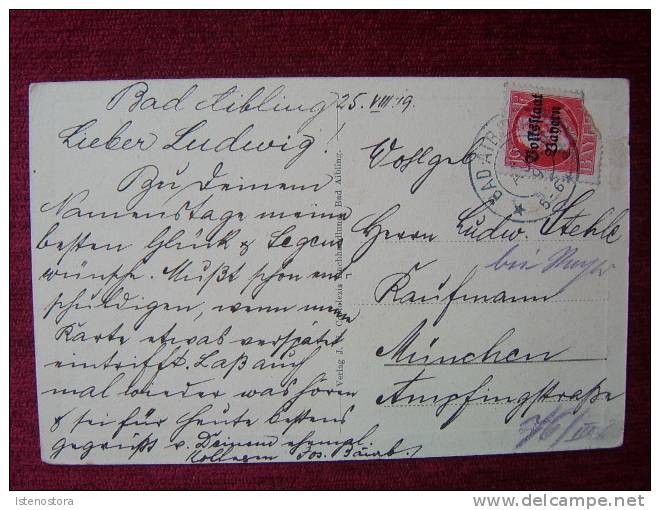 Bad Aibling 25.VIII.19.
Lieber Ludwig!
Zu Deinem
Namenstage meine
besten Glück & Segens
wünsche. Mußt schon ent
schuldigen, wenn meine
Karte etwas verspätet
eintrifft. Laß auch
mal wieder was hören
& sei für heute bestens
gegrüßt v. Deinem ehemal.
Kollegen Jos.
Verlag J. Buchhandlung, Bad Aibling.
Volksstaat
Bayern
BAD AIB
Wohlgeb
Herrn Ludw. Stehle
bei
Kaufmann
München
Ampfingstraße
Istenostora
delcampe.net